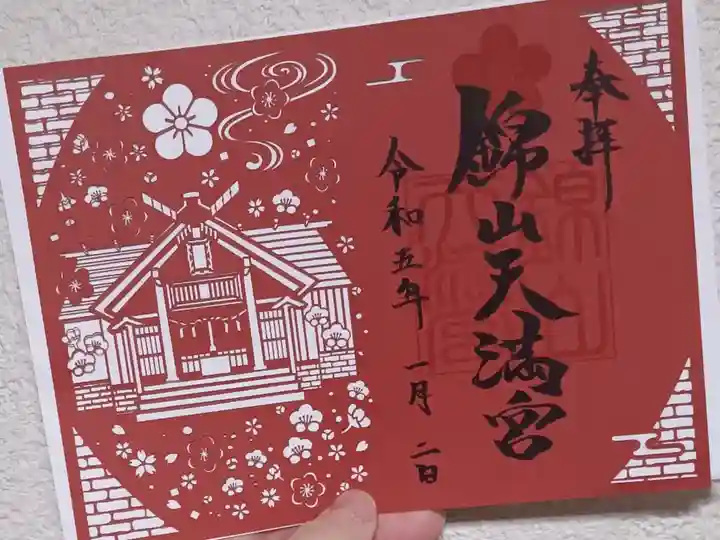 奉拝
錦山天満宮
令和五年 一月 二日